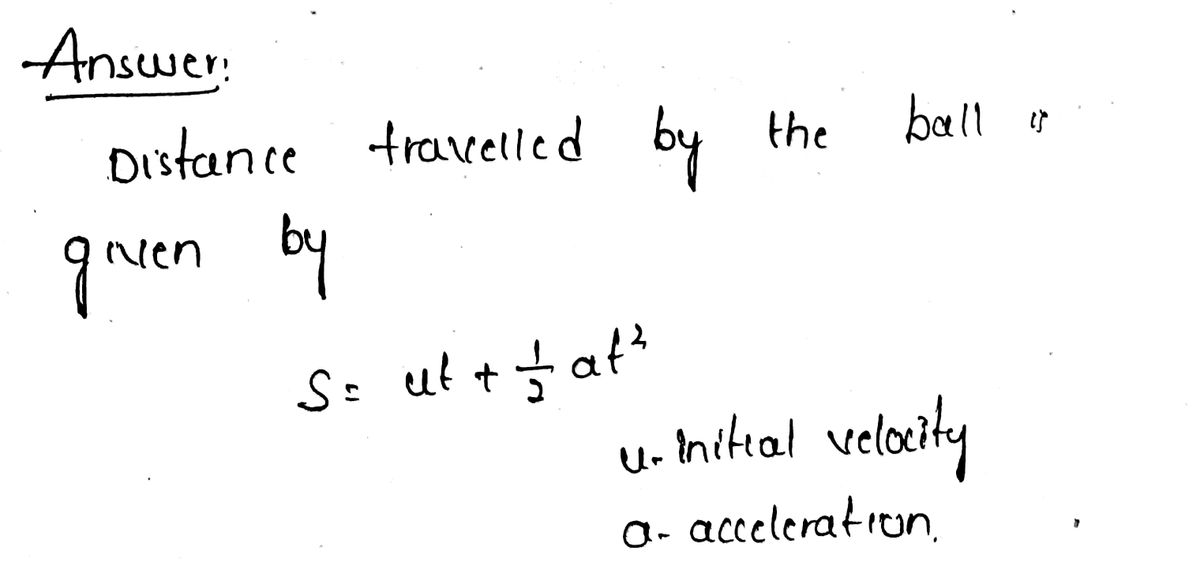 Answer:
Distance travelled by the ball is
given by
S = ut + 1/2 at²
u- Initial velocity
a- acceleration.